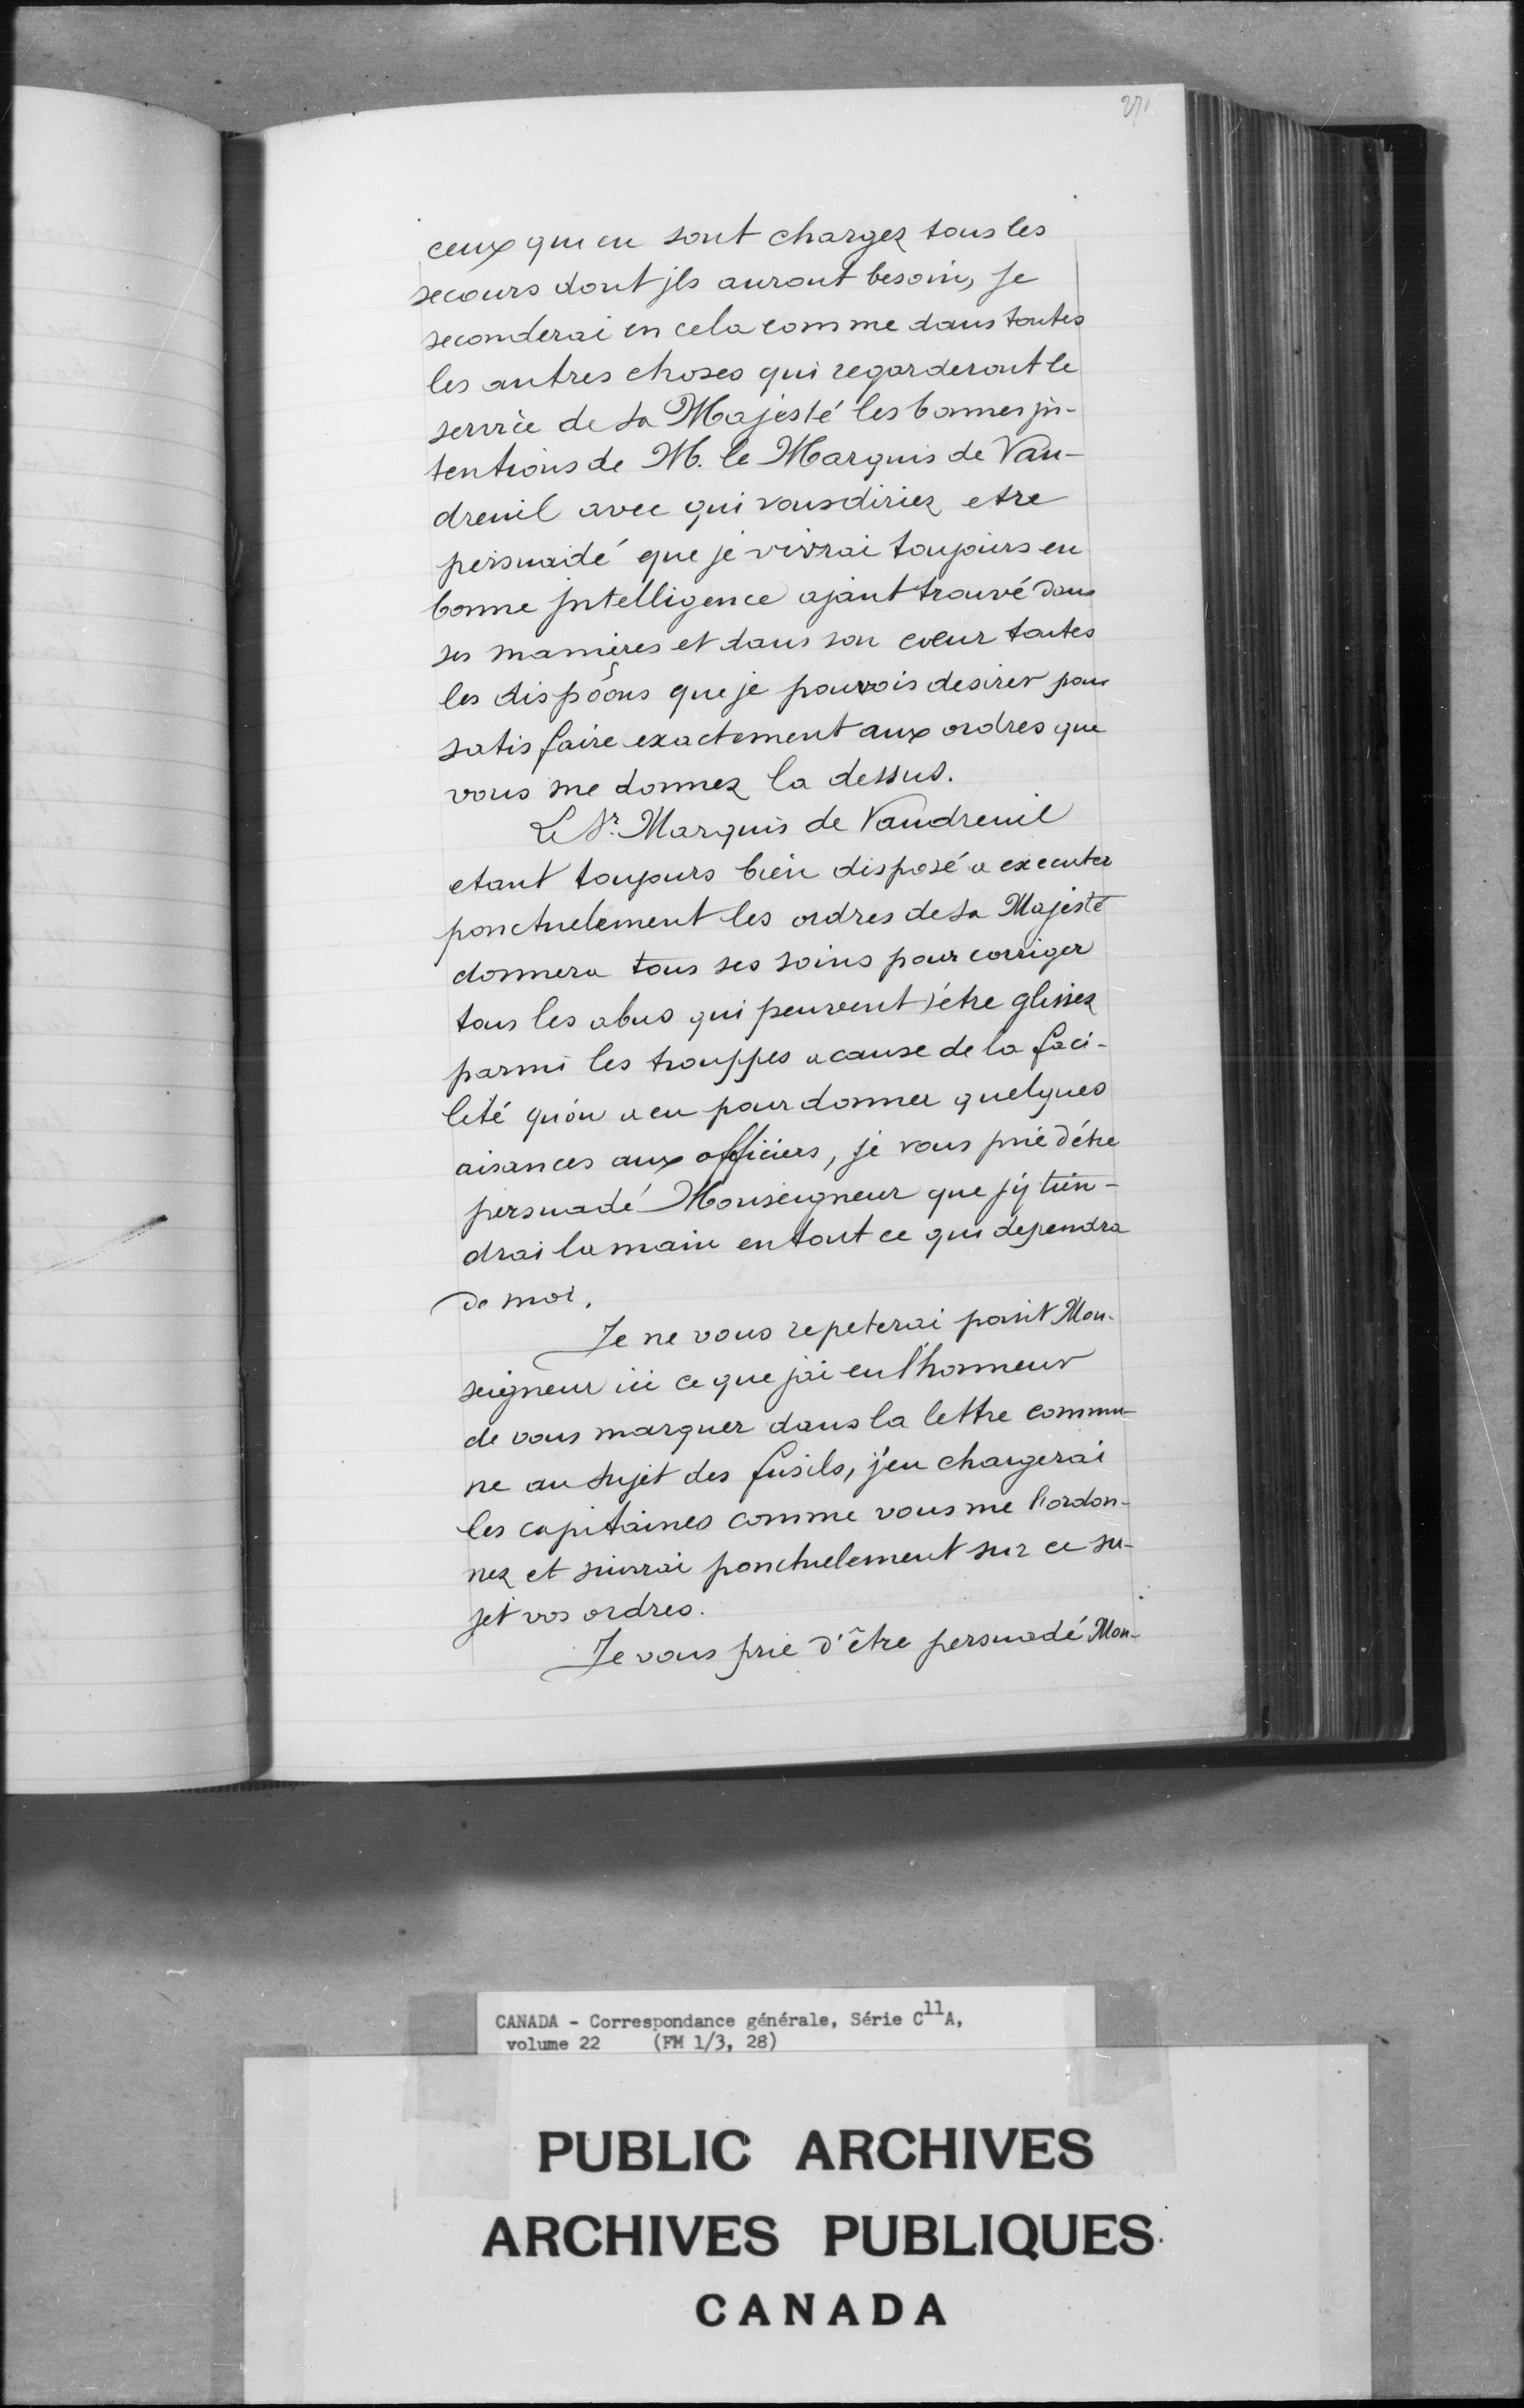 271
ceux qui en sont chargez tous les
secours dont jls auront besoin, Je
seconderai en cela comme dans toutes
les autres choses qui regarderont le
service de sa Majesté les bonnes jn-
tentions de M. le Marquis de Vau-
dreuil avec qui vous diriez etre
persuadé que je vivrai toujours en
bonne jntelligence ajant trouvé dans
ses manieres et dans son coeur toutes
les dispôons que je pouvois desirer pour
satisfaire exactement aux ordres que
vous me donnez la dessus.
Le Sr. Marquis de Vaudreuil
etant toujours bien disposé a executer
ponctuelement les ordres de sa Majesté
donnera tous ses soins pour corriger
tous les abus qui peuvent s'étre glissez
parmi les trouppes a cause de la faci-
lité qu'on a eu pour donner quelques
aisances aux officiers, je vous prie d'étre
persuadé Monseigneur que j'y tien-
drai la main en tout ce qui dependra
de moi.
Je ne vous repeterai point Mon-
seigneur ici ce que j'ai eu l'honneur
de vous marquer dans la lettre commu-
ne au sujet des fusils, j'en chargerai
les capitaines comme vous me l'ordon-
nez et suivrai ponctuelement sur ce su-
jet vos ordres.
Je vous prie d'être persuadé Mon-
CANADA - Correspondance générale, Série C11A,
volume 22 (FM 1/3, 28)
PUBLIC ARCHIVES
ARCHIVES PUBLIQUES
CANADA